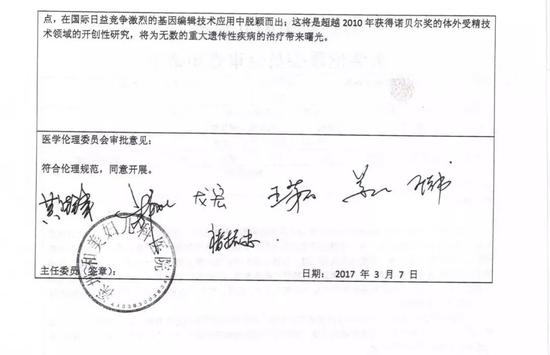 点，在国际日益竞争激烈的基因编辑技术应用中脱颖而出；这将是超越 2010 年获得诺贝尔奖的体外受精技
术领域的开创性研究，将为无数的重大遗传性疾病的治疗带来曙光。
医学伦理委员会审批意见：
符合伦理规范，同意开展。
深圳和美妇儿科医院
主任委员（签章）：
日期： 2017 年 3 月 7 日